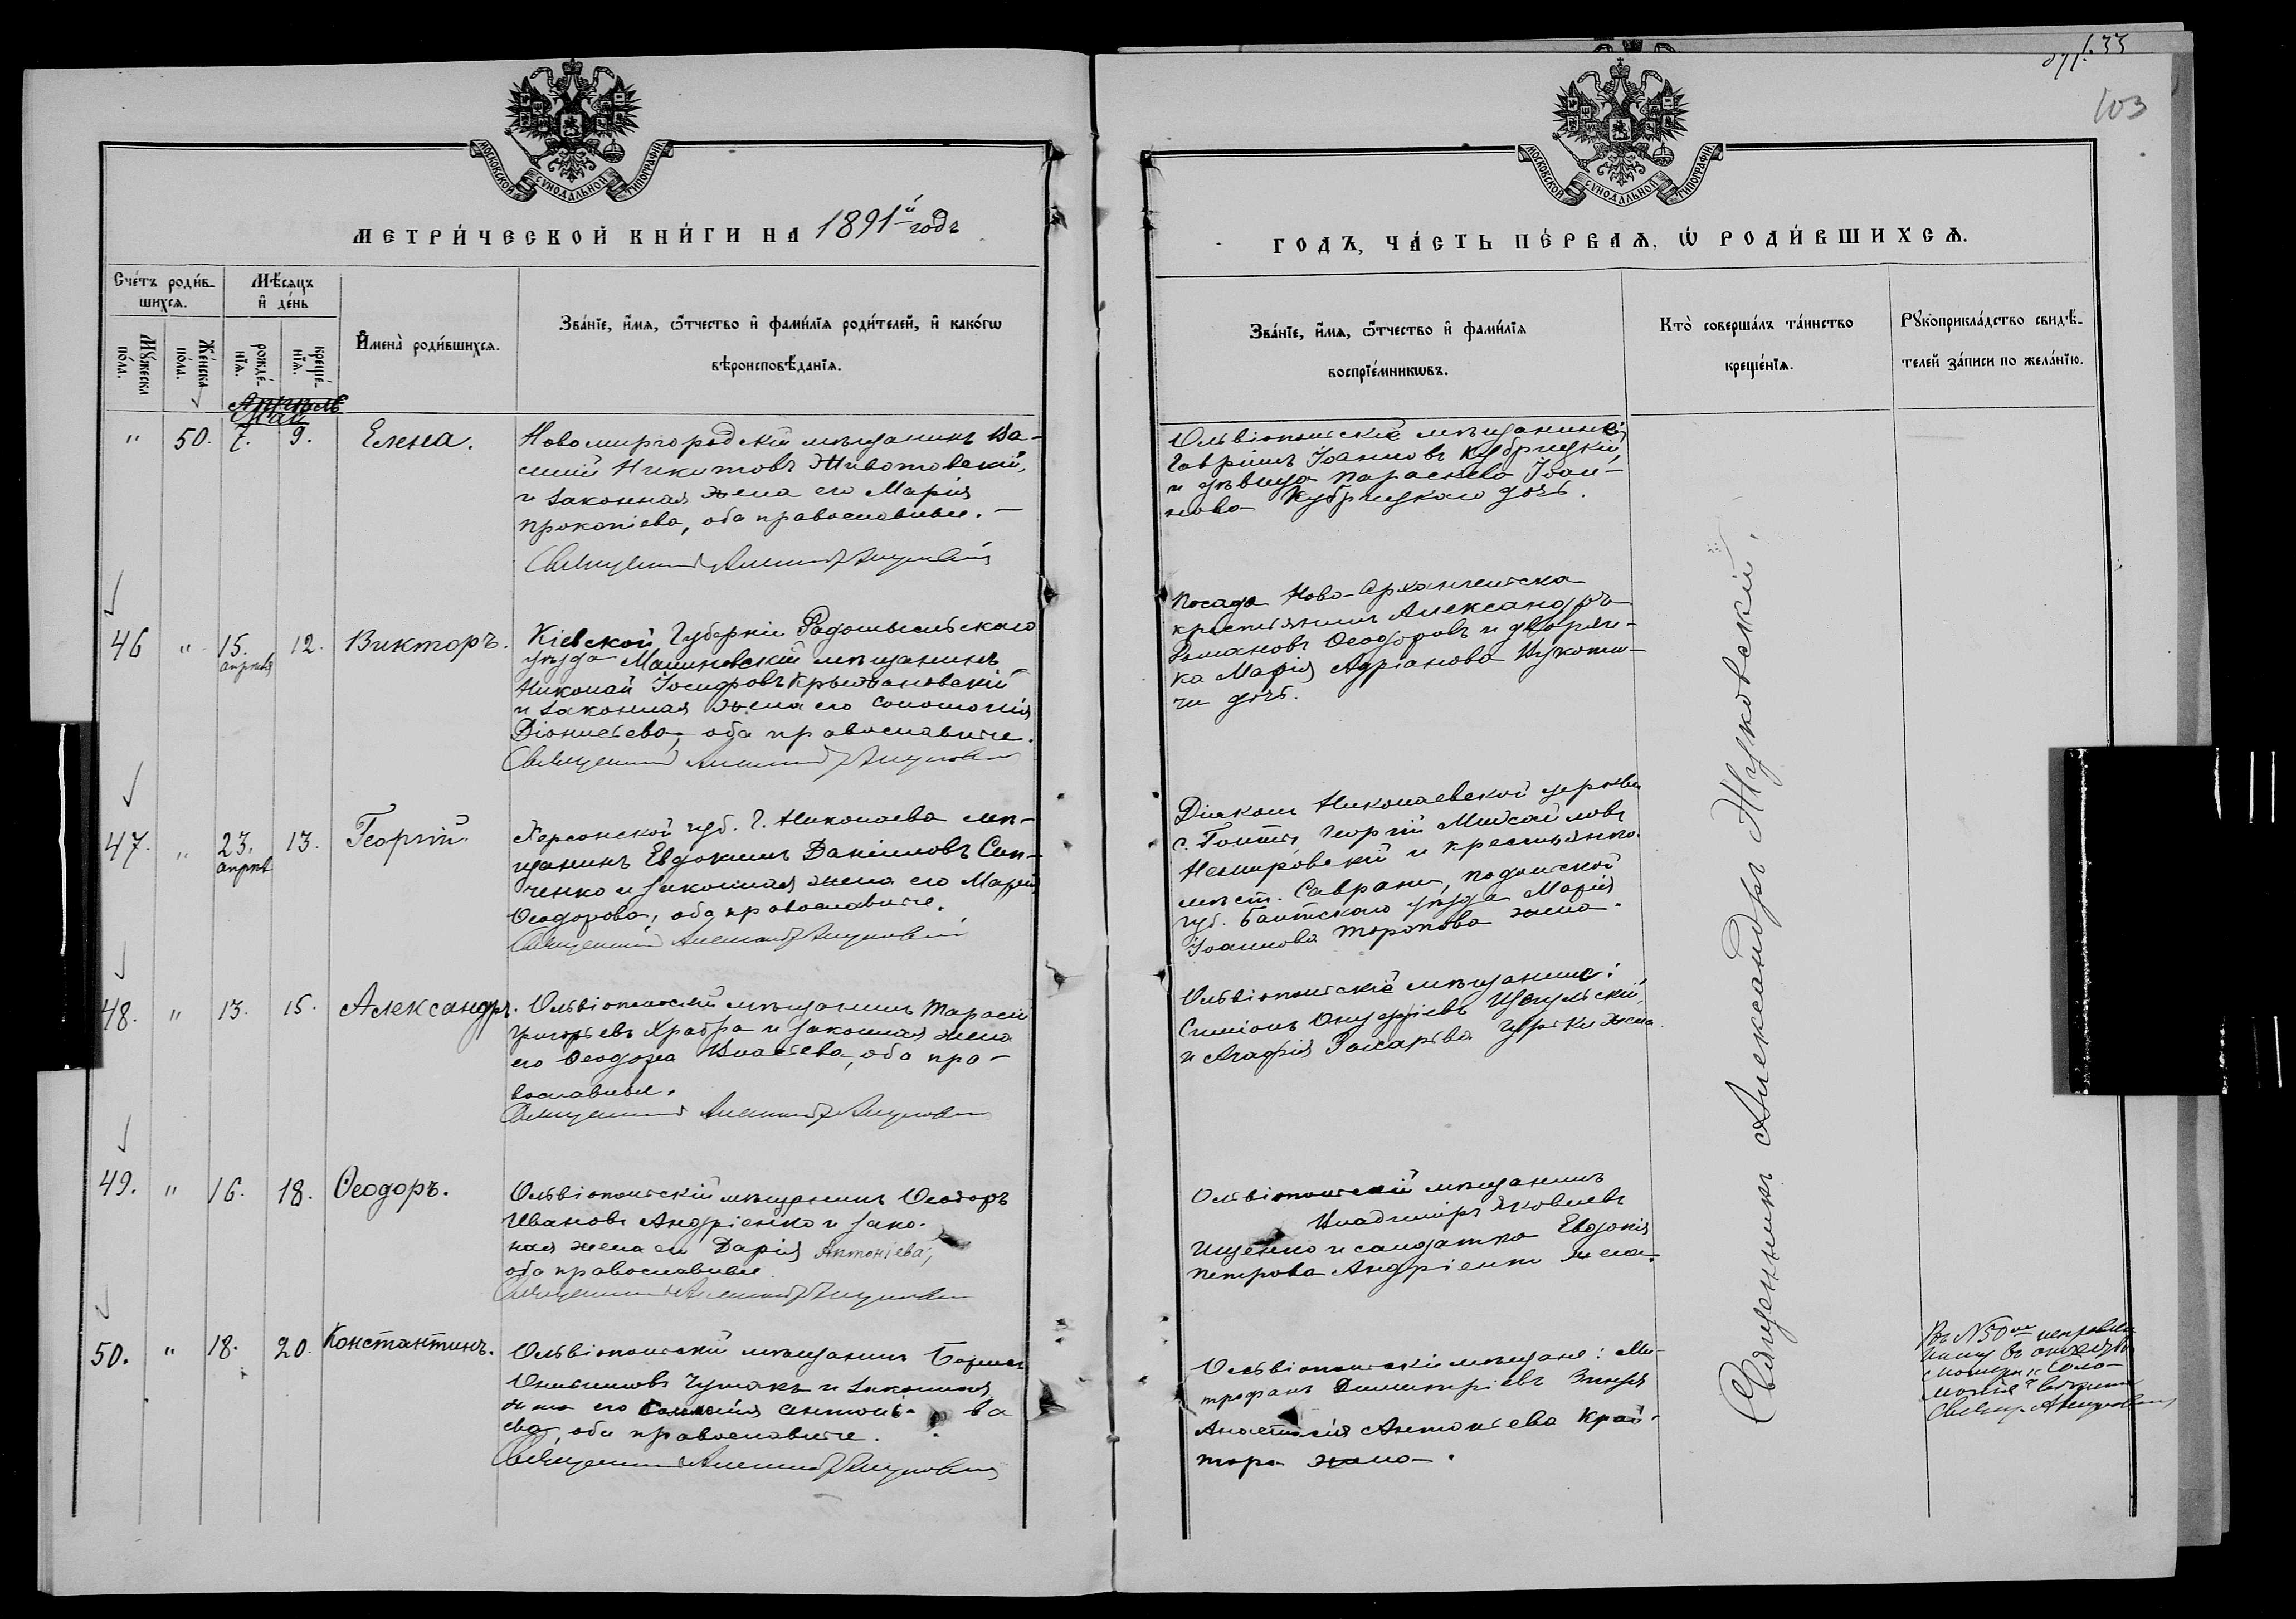 133
103
МОСКОВСКОЙ СѴНОДАЛЬНОЙ ТИПОГРАФІИ
МЕТРИ́ЧЕСКОЙ КНИ́ГИ НА 1891й годъ
Сче́тъ роди́в-
шихсѧ.
Мѣ́сѧцъ
и҆ де́нь
Мꙋ́жеска
по́ла.
Же́нска
по́ла.
рожде́-
нїѧ.
креще́-
нїѧ.
И҆мена̀ роди́вшихсѧ.
Зва́нїе, и҆́мѧ, ѻ҆́тчество и҆ фами́лїѧ роди́телей, и҆ како́гѡ
вѣроисповѣ́данїѧ.
Апрѣль
Май
" 50. 7. 9. Елена.
Новомиргородскій мѣщанинъ Ва-
силій Никитовъ Животовскій,
и законная жена его Марія
Прокопіева, оба православные.
Священникъ Александръ Жуковскій
46 " 15. апрѣля 12. Викторъ.
Кіевской Губерніи Радомысльскаго
уѣзда Малиновскій мѣщанинъ
Николай Іосифовъ Крыжановскій
и законная жена его Соломонія
Діонисіева, оба православные.
Священникъ Александръ Жуковскій
47. " 23. апрѣл 13. Георгій.
Херсонской губ. г. Николаева мѣ-
щанинъ Евдокимъ Даніиловъ Сап-
ченко и законная жена его Марія
Ѳеодорова, оба православные.
Священникъ Александръ Жуковскій
48. " 13. 15. Александръ.
Ольвіопольскій мѣщанинъ Тарасій
Григорьевъ Храбра и законная жена
его Ѳеодора Власіева, оба пра-
вославные.
Священникъ Александръ Жуковскій
49. " 16. 18. Ѳеодоръ.
Ольвіопольскій мѣщанинъ Ѳеодоръ
Ивановъ Андріенко и зако-
ная жена его Дарія Антоніева,
оба православные
Священникъ Александръ Жуковскій
50. " 18. 20. Константинъ.
Ольвіопольскій мѣщанинъ Борисъ
Чумакъ и законная
жена его Антоні-
ева, оба православные.
Священникъ Александръ Жуковскій
МОСКОВСКОЙ СѴНОДАЛЬНОЙ ТИПОГРАФІИ
ГОДЪ, ЧА́СТЬ ПЕ́РВАѦ, Ѡ҆ РОДИ́ВШИХСѦ.
Зва́нїе, и҆́мѧ, ѻ҆́тчество и҆ фами́лїѧ
воспрїе́мникѡвъ.
Кто̀ соверша́лъ та́инство
креще́нїѧ.
Рꙋкоприкла́дство свидѣ́-
телей за́писи по жела́нїю.
Ольвіопольскіе мѣщанине:
Гавріилъ Іоанновъ Кубрицкій
и дѣвица Параскева Іоан-
нова Кубрицкаго дочь.
Посада Ново-Архангельска
крестьянинъ Александръ
Романовъ Ѳеодоровъ и дворян-
ка Марія Адріанова
чи дочь.
Діаконъ Николаевской церкви
с. Голты Георгій Михайловъ
Немировскій и крестьянка
мѣст. Саврани, Подольской
губ. Балтскаго уѣзда Марія
Іоаннова Торопова жена.
Ольвіопольскіе мѣщанине:
Симеонъ Онуфріевъ Цвульскій,
и Агафія Захарьева жена.
Ольвіопольскій мѣщанинъ
Владиміръ Яковлевъ
Ищенко и солдатка Евдокія
Петрова Андріенко жена.
Ольвіопольскіе мѣщане: Ми-
трофанъ Димитріевъ
Анастасія Антоніева Край-
тора жена.
Священникъ Александръ Жуковскій.
Въ №50мъ